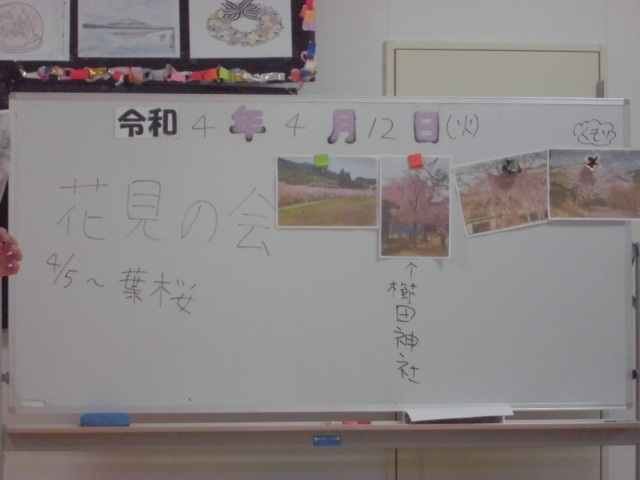 令和4年4月12日(火)
くもり
花見の会
4/5～葉桜
↑
櫛田神社